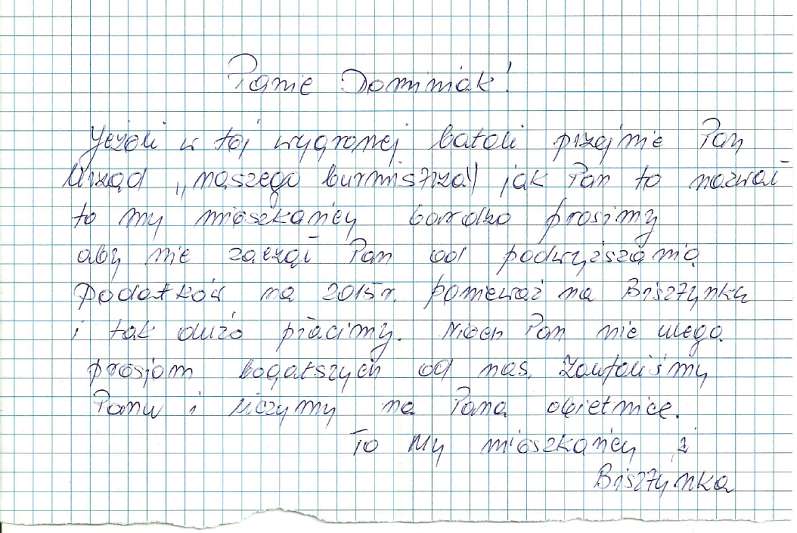 Panie Dominiak!
Jeżeli w tej wygranej batali przejmie Pan
Urząd „naszego burmistrza" jak Pan to nazwał
to my mieszkańcy bardzo prosimy
aby nie zaczął Pan od podwyższania
podatków na 2015 r. ponieważ na Bisztynka
i tak dużo płacimy. Niech Pan nie ulega
prośjom bogatszych od nas. Zaufaliśmy
Panu i liczymy na Pana obietnice.
To My mieszkańcy z
Bisztynka